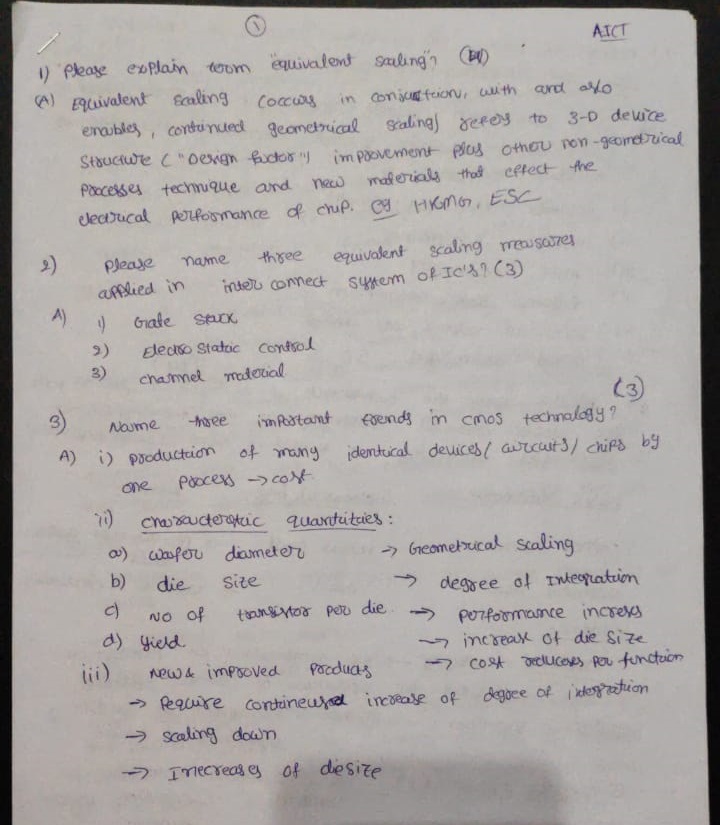 1
AICT
1) Please explain room "equivalent scaling"?
(A) Equivalent scaling (occurs in conjuction, with and also
enables, continued geometrical scaling) refers to 3-D device
Structure ("Design factor") improvement plus other non-geometrical
Processes technique and new materials that effect the
electrical performance of chip. eg HKMG, ESC
2) Please name three equivalent scaling measures
applied in inter connect system of IC's? (3)
A) 1) Gate stack
2) Electro static control
3) channel material
(3)
3) Name three important trends in cmos technology?
A) i) production of many identical devices/ circuits/ chips by
one process → cost
ii) characterstic quantities :
a) wafer diameter → Geometrical scaling
b) die size → degree of Integration
c) No of transistor per die → performance increses
d) Yield → increase of die size
iii) New & improved products → cost reduceses per function
→ Require contineused increase of degree of integration
→ scaling down
→ Inecreases of diesize